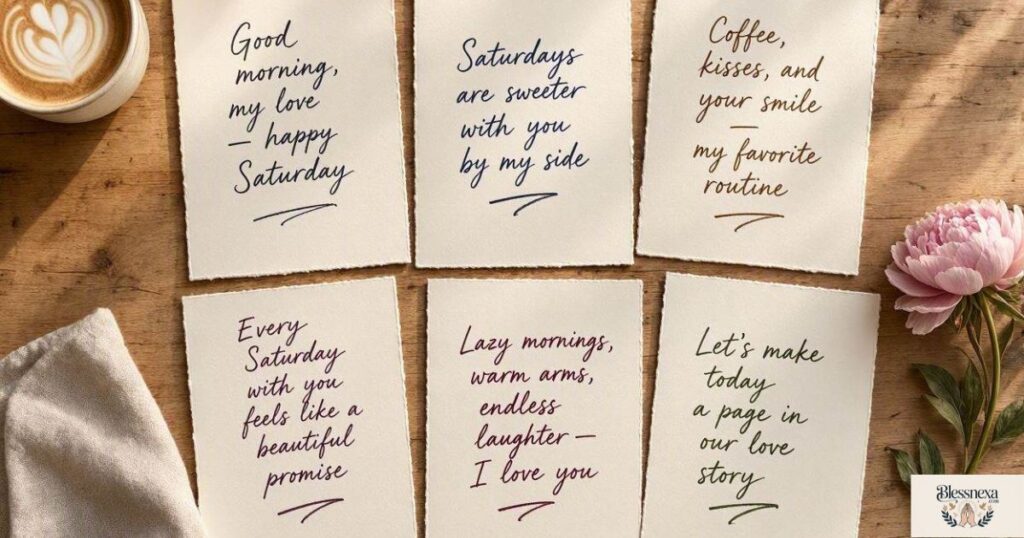 Good
morning,
my love
— happy
Saturday
Saturdays
are sweeter
with you
by my side
Coffee,
kisses, and
your smile
—
my favorite
routine
Every
Saturday
with you
feels like a
beautiful
promise
Lazy mornings,
warm arms,
endless
laughter —
I love you
Let's make
today
a page in
our love
story
Blessnexa
.com